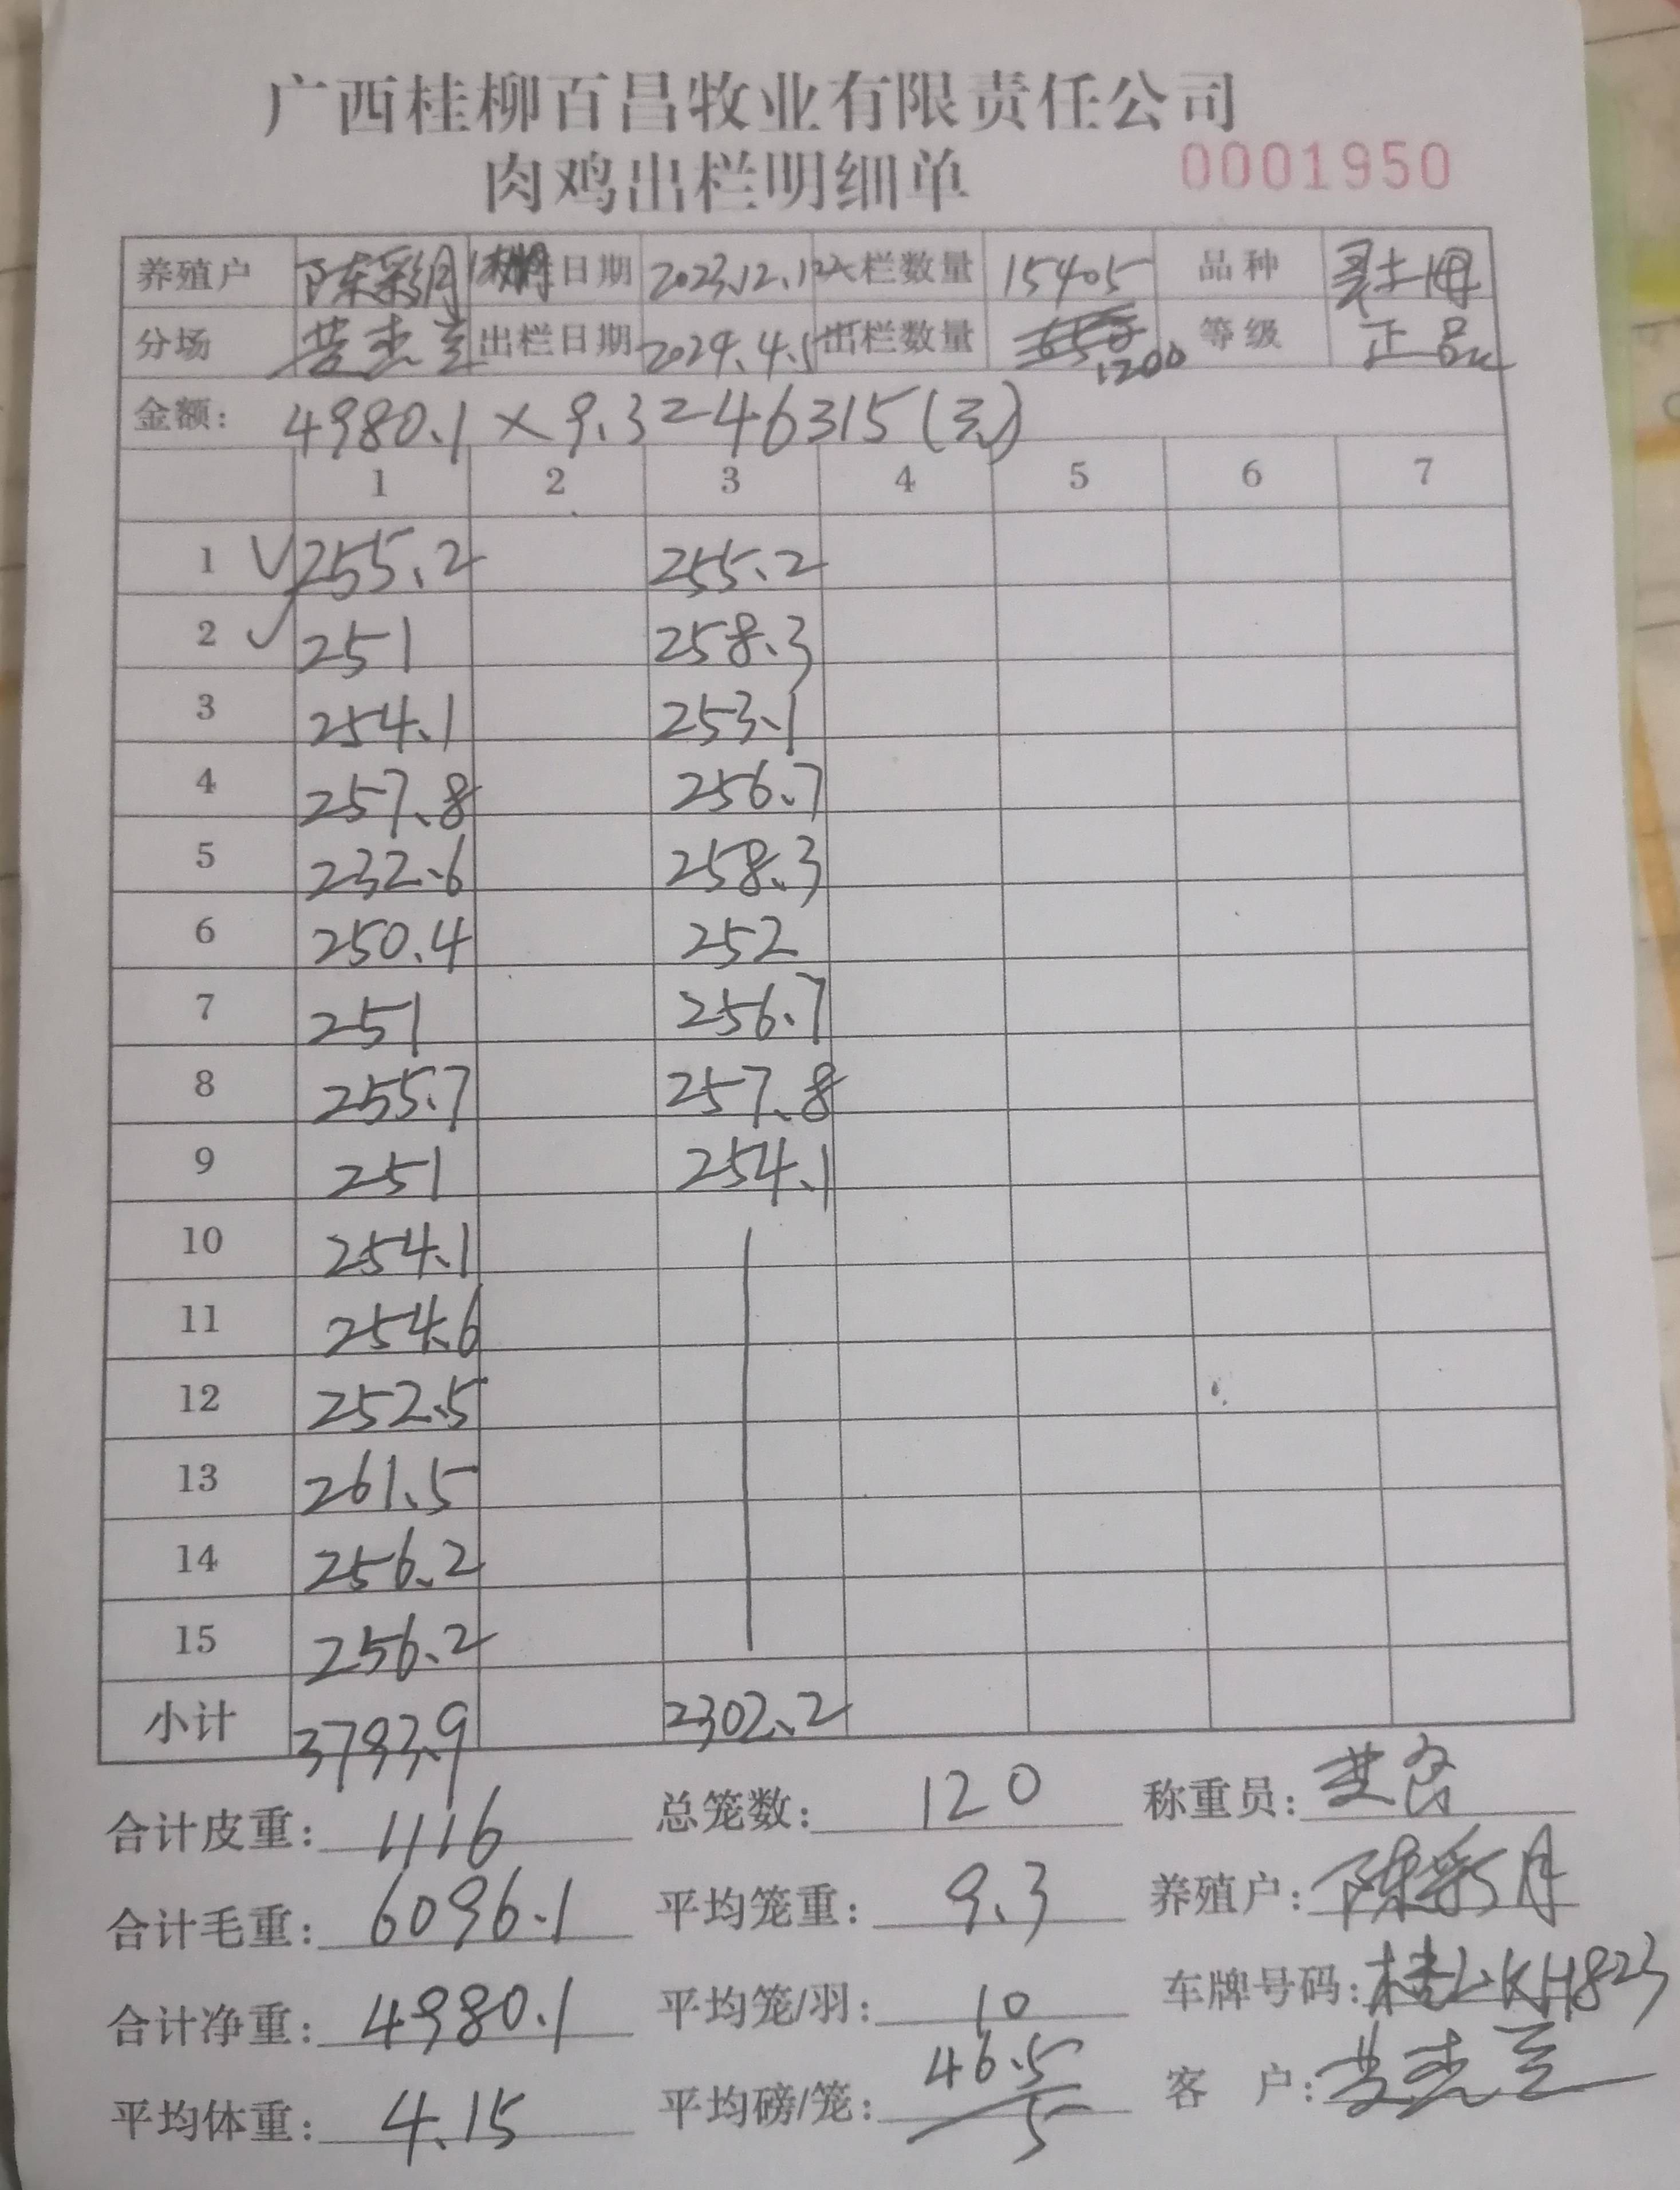 广西桂柳百昌牧业有限责任公司
肉鸡出栏明细单 0001950
养殖户 陈彩月 日期 2023.12.12 入栏数量 15405 品种
分场 出栏日期 2024.4.5 出栏数量 1200 等级 正品
金额: 4980.1×9.3=46315(元)
1 2 3 4 5 6 7
1 255.2 255.2
2 251 258.3
3 254.1 253.1
4 257.8 256.7
5 232.6 258.3
6 250.4 252
7 251 256.7
8 255.7 257.8
9 251 254.1
10 254.1
11 254.6
12 252.5
13 261.5
14 256.2
15 256.2
小计 3793.9 2302.2
合计皮重: 1116 总笼数: 120 称重员:
合计毛重: 6096.1 平均笼重: 9.3 养殖户: 陈彩月
合计净重: 4980.1 平均笼/羽: 10 车牌号码: 桂LKH823
平均体重: 4.15 平均磅/笼: 46.5 5 客 户: